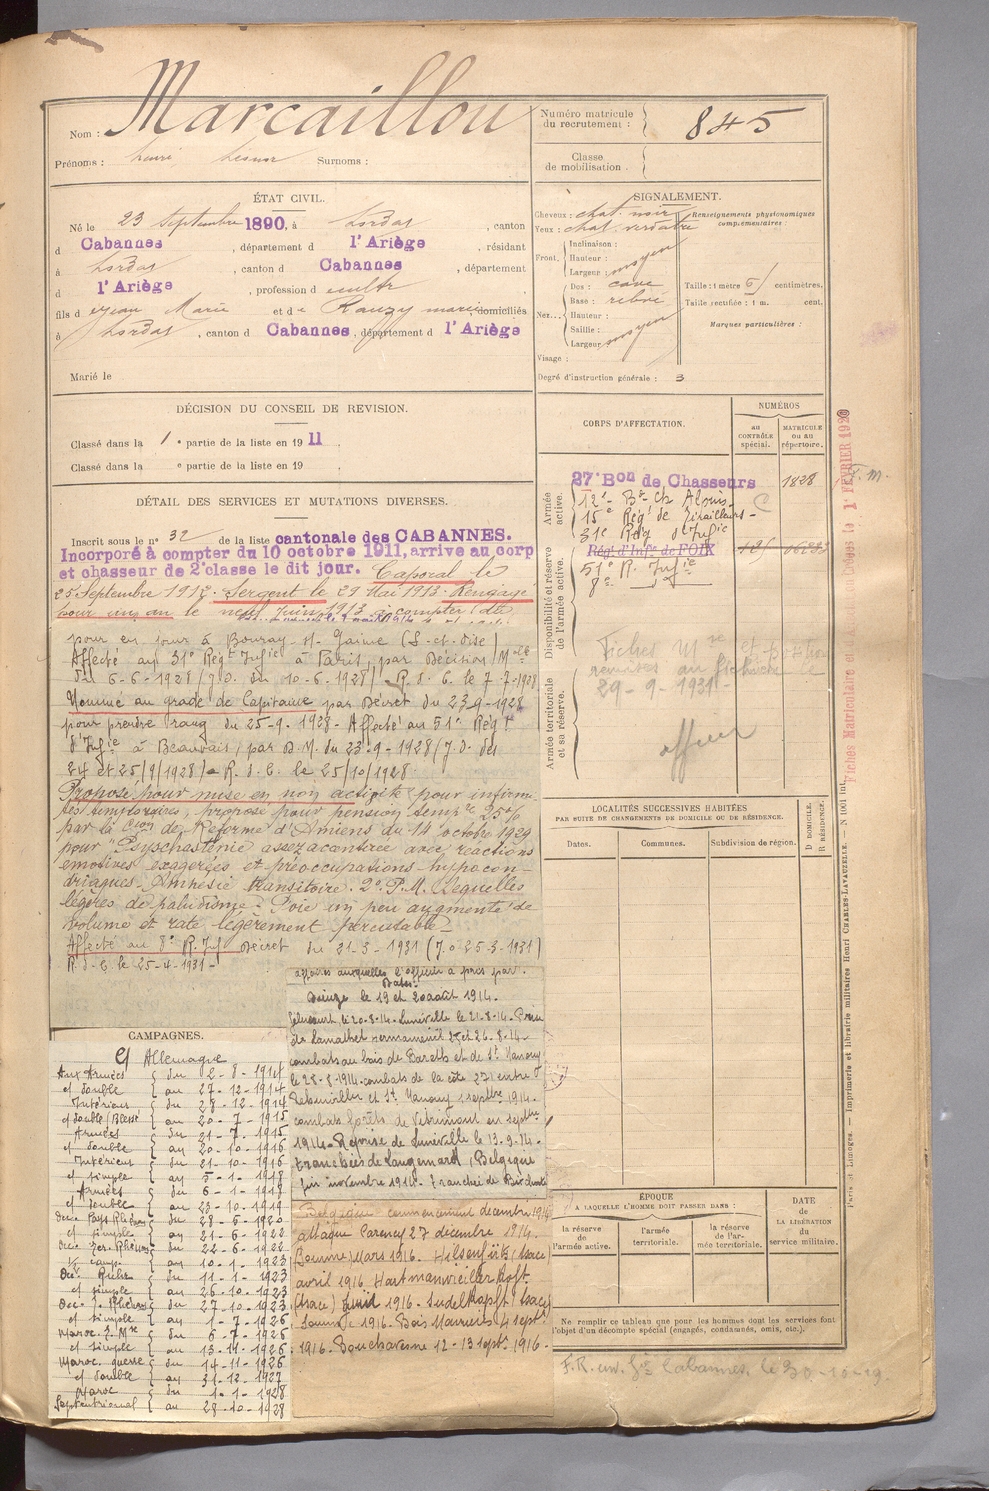 Nom : Marcaillou
Prénoms : Surnoms :
Numéro matricule du recrutement : 845
Classe de mobilisation :
ÉTAT CIVIL.
Né le 23 Septembre 1890, à Lordat, canton
d Cabannes, département d l'Ariège, résidant
à Lordat, canton d Cabannes, département
d l'Ariège, profession d
fils d Jean Marie et de Rauzy marie domiciliés
à Lordat, canton d Cabannes, département d l'Ariège
Marié le
SIGNALEMENT.
Cheveux : chat. noir
Yeux : chat. verdâtre
Renseignements physionomiques complémentaires
Front. Inclinaison :
Hauteur :
Largeur : moyen
Nez... Dos : cave
Base : relevé
Hauteur :
Saillie :
Largeur : moyen
Visage :
Taille : 1 mètre centimètres.
Taille rectifiée : 1 m. cent.
Marques particulières :
Degré d'instruction générale : 3
DÉCISION DU CONSEIL DE REVISION.
Classé dans la 1e partie de la liste en 1911.
Classé dans la e partie de la liste en 19 .
DÉTAIL DES SERVICES ET MUTATIONS DIVERSES.
Inscrit sous le n° 32 de la liste cantonale des CABANNES.
Incorporé à compter du 10 octobre 1911, arrive au corp
et chasseur de 2e classe le dit jour. Caporal le
25 Septembre 1912. Sergent le 29 Mai 1913. Rengagé
pour un an le neuf Juin 1913 à compter du
pour un jour à Bouray
Affecté au 31e Régt Infie à Paris, par Décision Melle
du 6-6-1928 (J.O. du 10-6-1928) R.d.C. le 7-7-1928
Nommé au grade de Capitaine par Décret du 23-9-1928
pour prendre rang du 25-9-1928 - Affecté au 51e Régt
d'Infie à Beauvais (par D.M. du 23-9-1928 (J.O. des
24 et 25/9/1928) R.d.C. le 25/10/1928.
Proposé pour mise en non activité pour infirmi-
tés temporaires, proposé pour pension tempre 25%
par la Cion de Réforme d'Amiens du 14 octobre 1929
pour "Psyschasténie assez acontace avec réactions
emotives exagerées et préoccupations hypocon-
driaques. Amnésie transitoire. 2° P.M. Sequelles
légères de paludisme. Foie un peu augmenté de
volume et rate légèrement percutable"
Affecté au 8e R. Inf Décret du 21-3-1931 (J.O 25-3-1931)
R.d.C. le 25-4-1931-
affaires auxquelles l'officier a pris part.
Dates.
Dieuze le 19 et 20 août 1914.
le 20-8-14. Lunéville le 21-8-14.
25 et 26-8-14.
combats au bois de et de St Manouy
le 28-8-1914. combats de la côte 271 entre
Rehainviller et St Manouy 1 septbre 1914.
combats forêts de Vitrimont en septbre
1914. Reprise de Lunéville le 13-9-14.
tranchées de Langemarck, Belgique
fin novembre 1914. tranchée de Bixchoote
Belgique commencement decembre 1914
attaque Carency 27 décembre 1914.
Mars 1916. Hilsenfirts (Alsace)
avril 1916 Hartmanvieillerkopft
(Alsace) 1916. Sudelkopft (Alsace)
Somme 1916. Bois Marrières 4 septe
1916. Bouchavesne 12-13 septe 1916.
CAMPAGNES.
C/ Allemagne
Aux Armées du 2-8-1914
c/ double au 27-12-1914
Intérieur du 28-12-1914
c/ double (Blessé) au 20-7-1915
Armées du 21-7-1915
c/ double au 20-10-1916
Intérieur du 21-10-1916
c/ simple au 5-1-1918
Armées du 6-1-1918
c/ double au 23-10-1919
Occ. Pays Rhénans du 28-6-1920
c/ simple au 21-6-1922
Occ. Ter. Rhénans du 22-6-1922
1/2 camp. au 10-1-1923
Occ. Ruhr du 11-1-1923
c/ simple au 26-10-1923
Occ. Rhénans du 27-10-1923
c/ simple au 1-7-1926
Maroc du 6-7-1926
c/ simple au 13-11-1926
Maroc guerre du 14-11-1926
c/ double au 31-12-1927
Maroc du 1-1-1928
Septentrional au 28-10-1928
CORPS D'AFFECTATION.
NUMÉROS
au contrôle spécial.
matricule ou au répertoire.
Armée active.
27e Bon de Chasseurs 1828
12e Bn Ch Alpins
15e Régt de Tirailleurs
31e Rég d'Infie
Disponibilité et réserve de l'armée active.
Régt d'Infie de FOIX
51e R. Infie
8e
Armée territoriale et sa réserve.
Fiches Mre et position
remises au fichier le
29-9-1931-
officier
Fiches Matriculaire et 1er FÉVRIER 1920
LOCALITÉS SUCCESSIVES HABITÉES
PAR SUITE DE CHANGEMENTS DE DOMICILE OU DE RÉSIDENCE.
Dates. Communes. Subdivision de région.
D DOMICILE.
R RÉSIDENCE.
ÉPOQUE
A LAQUELLE L'HOMME DOIT PASSER DANS :
la réserve de l'armée active.
l'armée territoriale.
la réserve de l'armée territoriale.
DATE DE LA LIBÉRATION du service militaire.
Ne remplir ce tableau que pour les hommes dont les services font
l'objet d'un décompte spécial (engagés, condamnés, omis, etc.).
F.R. Cabannes, le 30-10-19.
Paris et Limoges. — Imprimerie et librairie militaires Henri CHARLES-LAVAUZELLE. — N 1001 int.